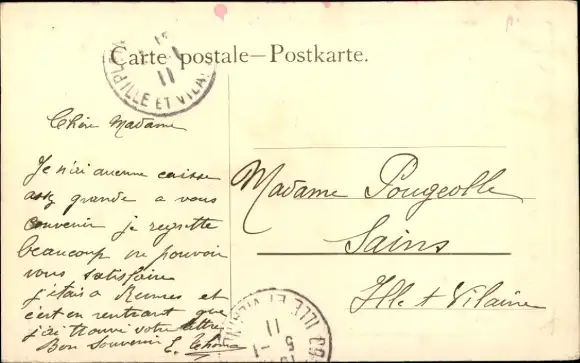 Carte postale—Postkarte.
ILLE ET VILAINE
11
Chère Madame
Je n'ai aucune caisse
assz grande a vous
convenir je regrette
beaucoup ne pouvoir
vous satisfaire
j'étais a Rennes et
c'est en rentrant que
j'ai trouvé votre lettre
Bon Souvenir E.
Madame Pougeolle
Sains
Ille & Vilaine
5 -1
11
ILLE ET VILAINE